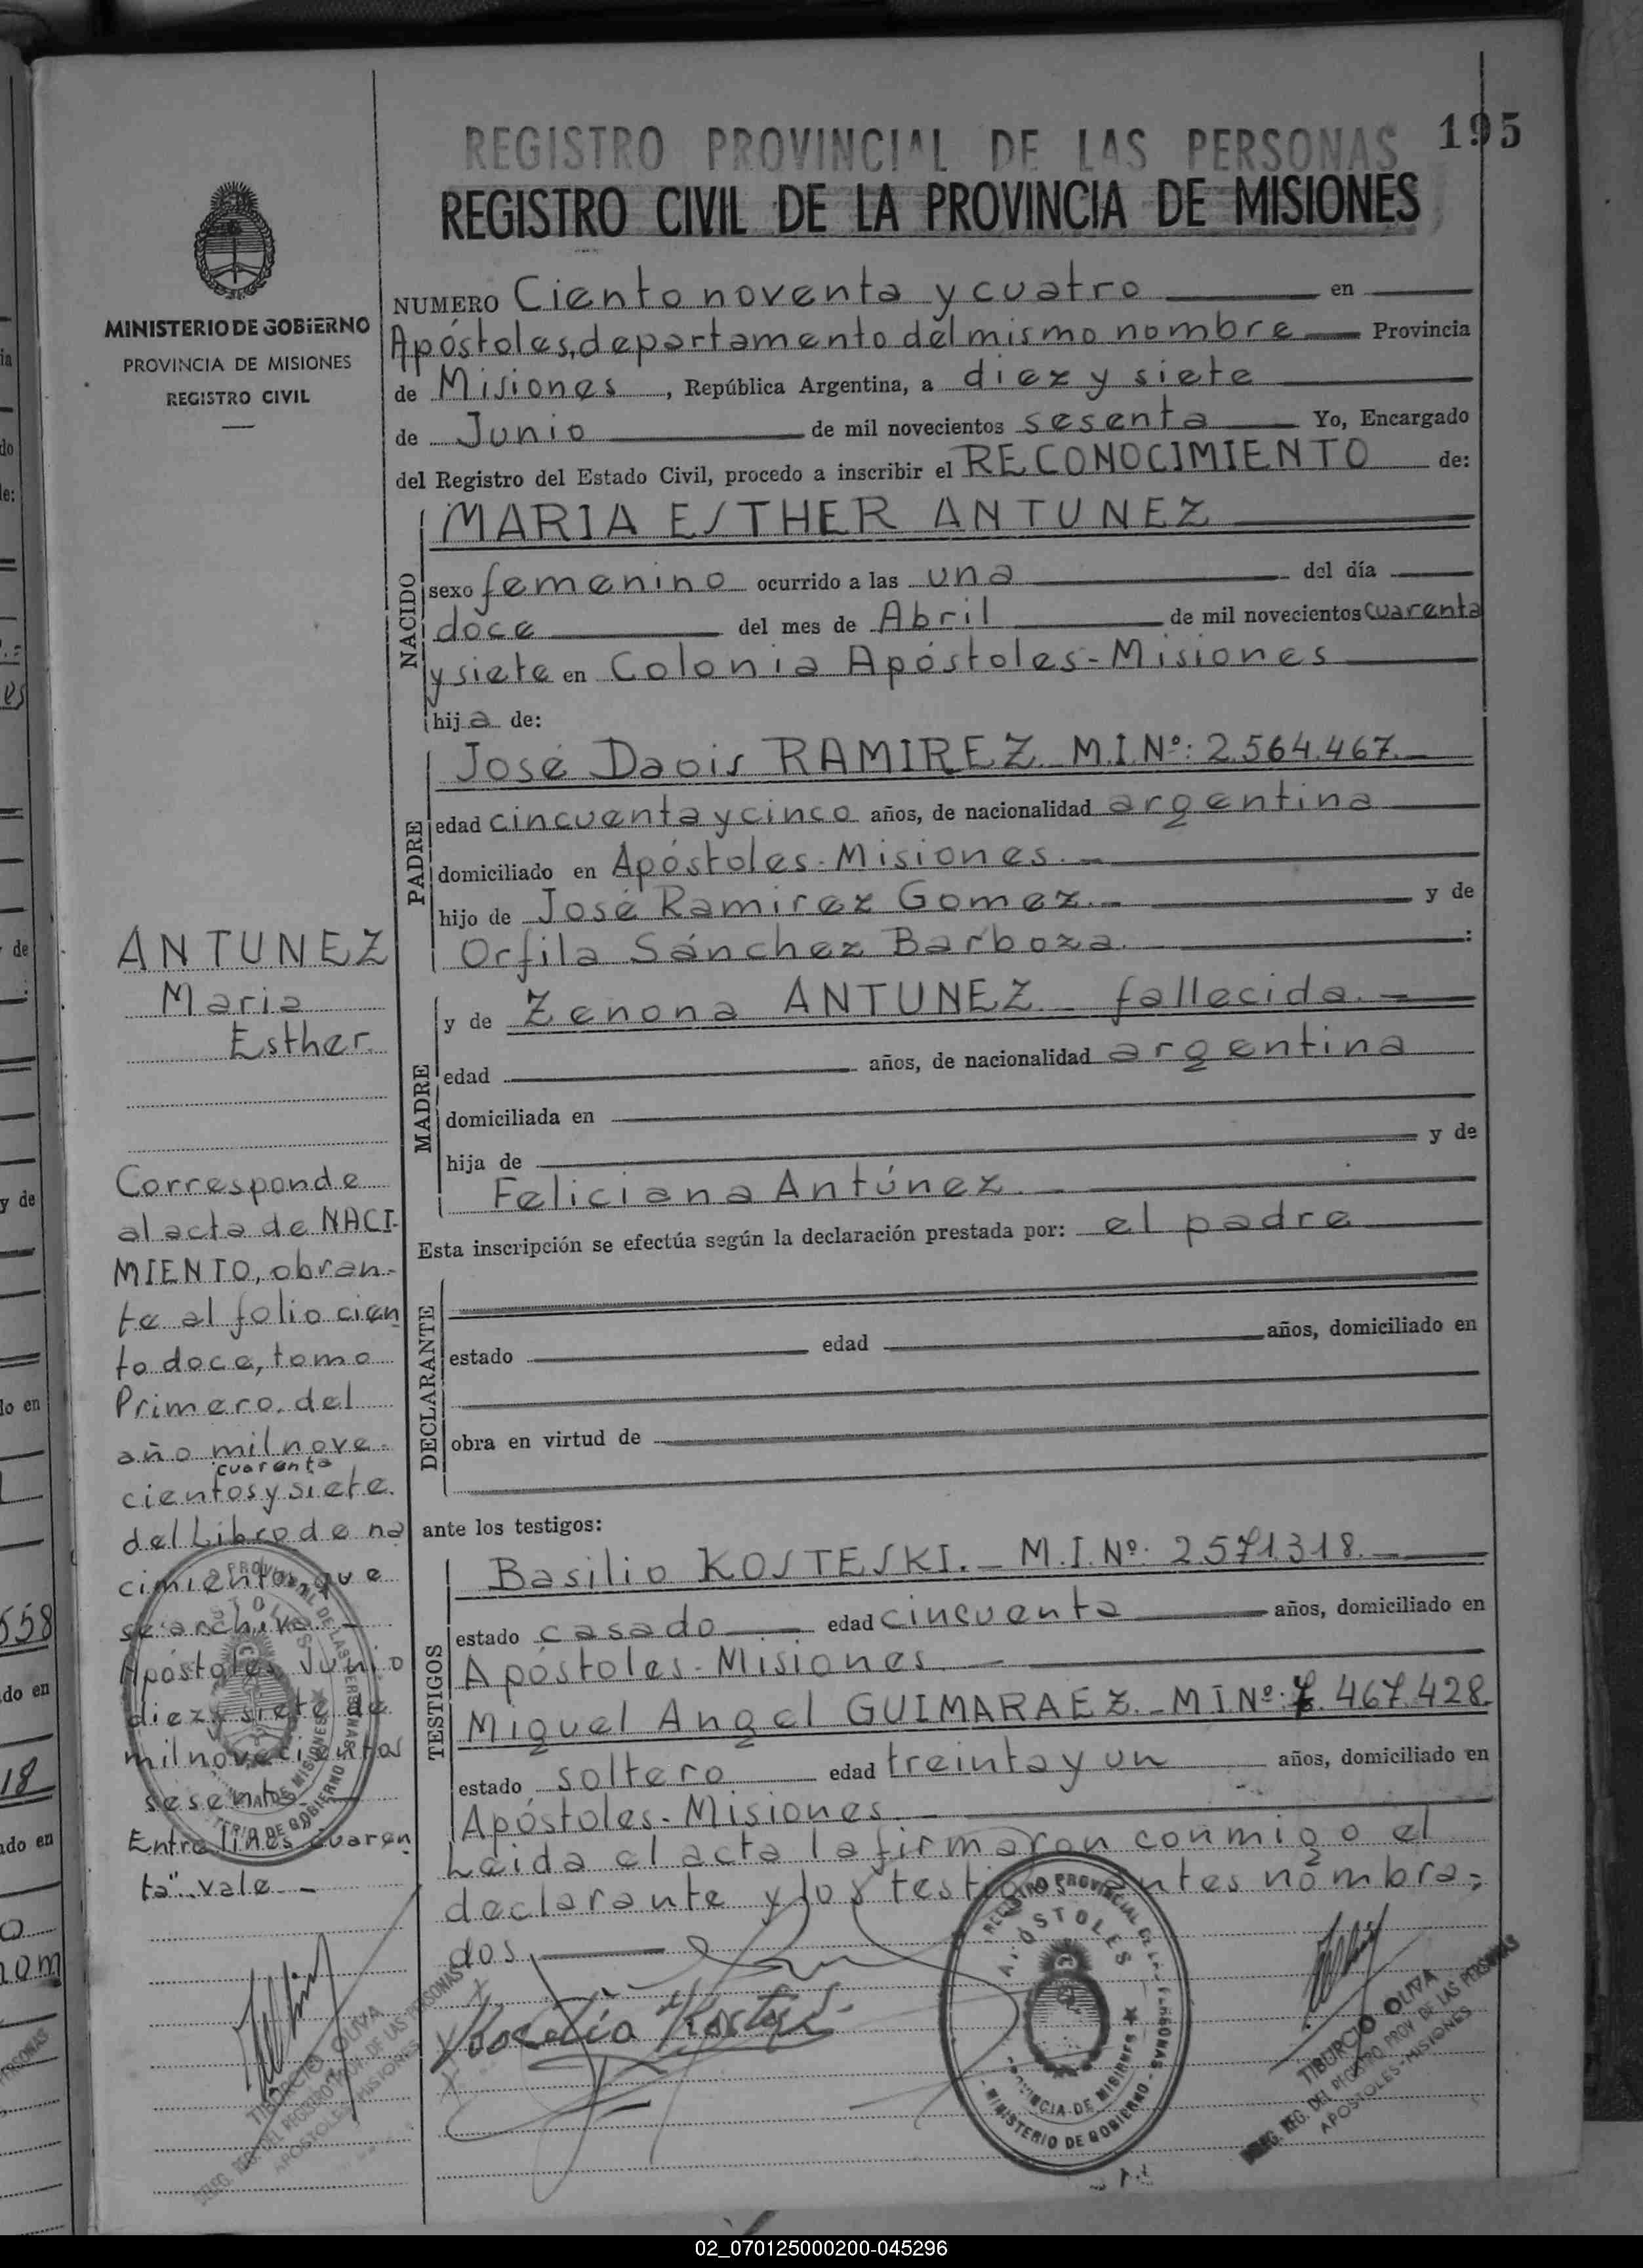 195
REGISTRO PROVINCIAL DE LAS PERSONAS
REGISTRO CIVIL DE LA PROVINCIA DE MISIONES
MINISTERIO DE GOBIERNO
PROVINCIA DE MISIONES
REGISTRO CIVIL
NUMERO Ciento noventa y cuatro en
Apóstoles, departamento del mismo nombre Provincia
de Misiones, República Argentina, a diez y siete
de Junio de mil novecientos sesenta Yo, Encargado
del Registro del Estado Civil, procedo a inscribir el RECONOCIMIENTO de:
NACIDO
MARIA ESTHER ANTUNEZ
sexo femenino ocurrido a las una del día
doce del mes de Abril de mil novecientos cuarenta
y siete en Colonia Apóstoles-Misiones
hija de:
PADRE
José Davis RAMIREZ. M.I.Nº: 2.564.467.-
edad cincuenta y cinco años, de nacionalidad argentina
domiciliado en Apóstoles-Misiones.-
hijo de José Ramirez Gomez.- y de
Orfila Sánchez Barboza. :
MADRE
y de Zenona ANTUNEZ.- fallecida.-
edad años, de nacionalidad argentina
domiciliada en
hija de y de
Feliciana Antúnez.-
Esta inscripción se efectúa según la declaración prestada por: el padre
DECLARANTE
estado edad años, domiciliado en
obra en virtud de
ante los testigos:
TESTIGOS
Basilio KOSTESKI.- M.I.Nº: 2571318.-
estado casado edad cincuenta años, domiciliado en
Apóstoles-Misiones.-
Miguel Angel GUIMARAEZ.- M I Nº: 7.467.428
estado soltero edad treinta y un años, domiciliado en
Apóstoles-Misiones.-
Leida el acta la firmaron conmigo el
declarante y los testigos antes nombra-
dos.
ANTUNEZ
Maria
Esther.
Corresponde
al acta de NACI-
MIENTO, obran-
te al folio cien
to doce, tomo
Primero, del
año mil nove-
cuarenta
cientos y siete.
del Libro de na
cimientos que
se archiva.-
Apóstoles, Junio
diez y siete de
mil novecientos
sesenta.-
Entre lines "cuaren
ta" vale.-
REGISTRO PROVINCIAL DE LAS PERSONAS
APOSTOLES
PROVINCIA DE MISIONES
MINISTERIO DE GOBIERNO
TIBURCIO OLIVA
DELEG. REG. DEL REGISTRO PROV. DE LAS PERSONAS
APOSTOLES-MISIONES
TIBURCIO OLIVA
DELEG. REG. DEL REGISTRO PROV. DE LAS PERSONAS
APOSTOLES-MISIONES
02_070125000200-045296